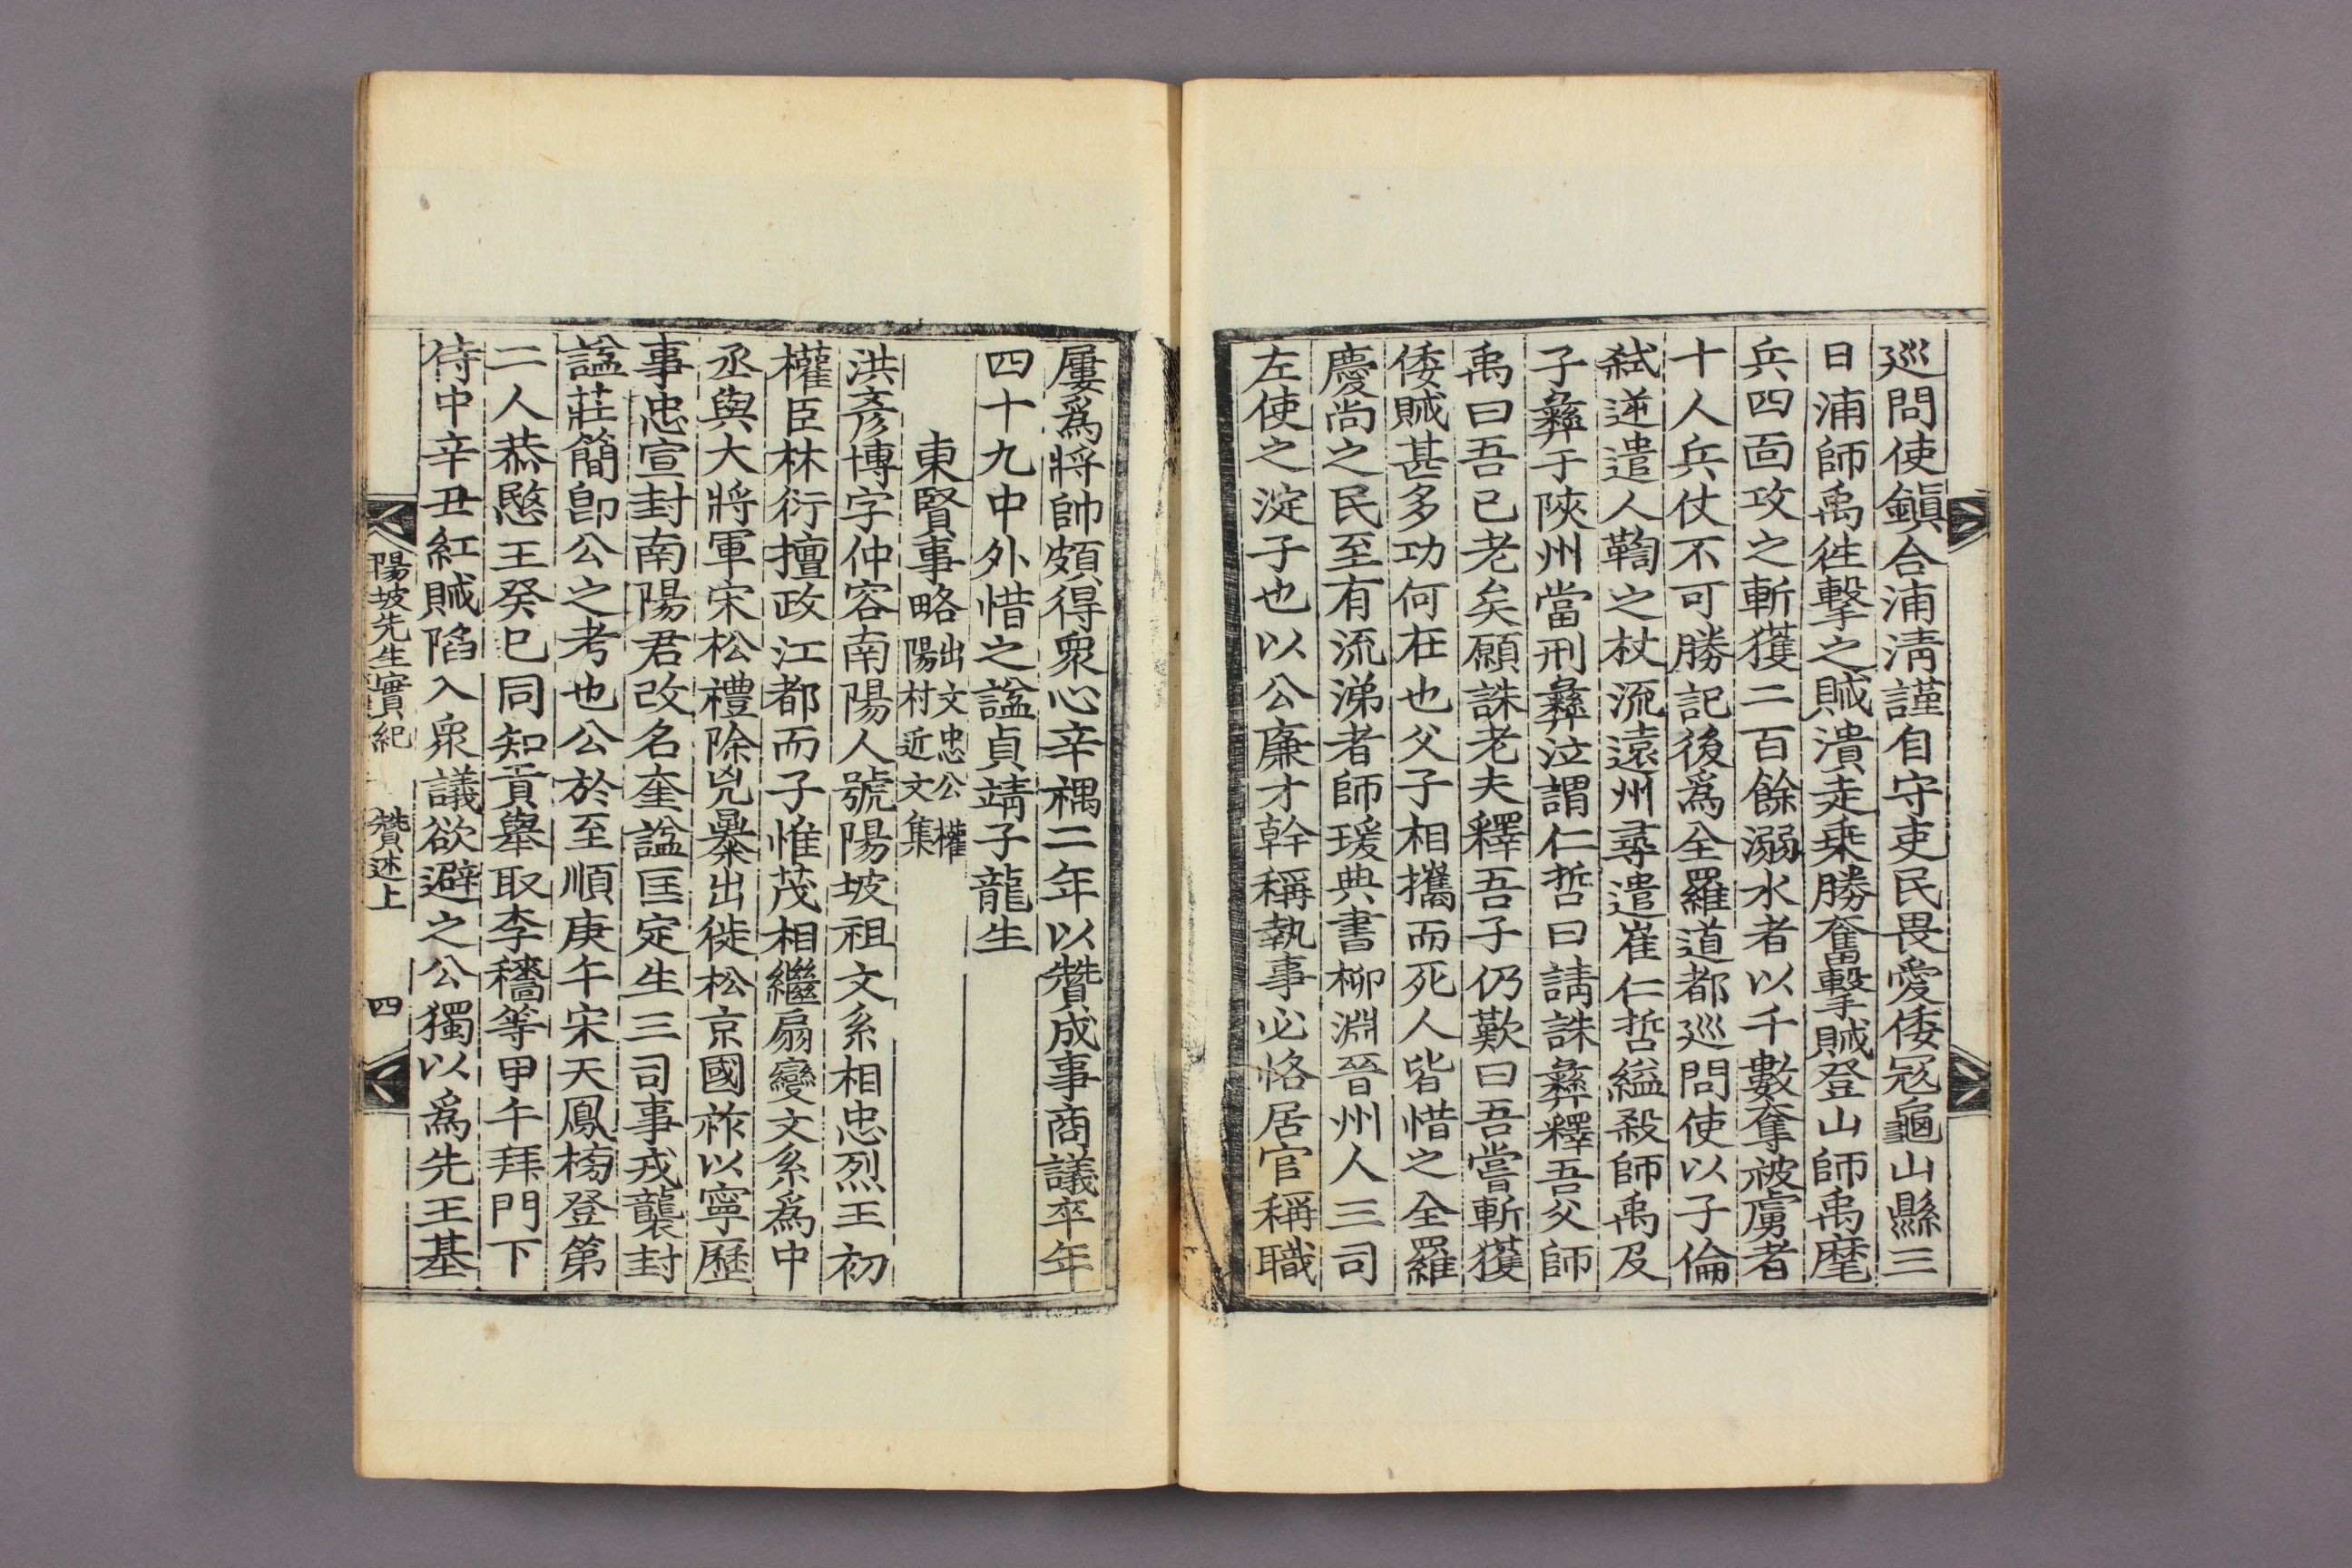 巡問使鎭合浦淸謹自守吏民畏愛倭冦龜山縣三
日浦師禹徃擊之賊潰走乗勝奮擊賊登山師禹麾
兵四面攻之斬獲二百餘溺水者以千數奪被虜者
十人兵仗不可勝記後爲全羅道都巡問使以子倫
弑逆遣人鞫之杖流遠州尋遣崔仁哲縊殺師禹及
子彝于陜州當刑彝泣謂仁哲曰請誅彝釋吾父師
禹曰吾已老矣願誅老夫釋吾子仍歎曰吾嘗斬獲
倭賊甚多功何在也父子相攜而死人皆惜之全羅
慶尚之民至有流涕者師瑗典書柳淵晉州人三司
左使之淀子也以公廉才幹稱執事必恪居官稱職
屢爲將帥頗得衆心辛禑二年以贊成事商議卒年
四十九中外惜之諡貞靖子龍生
東賢事略出文忠公權陽村近文集
洪彥博字仲容南陽人號陽坡祖文系相忠烈王初
權臣林衍擅政江都而子惟茂相繼扇變文系爲中
丞與大將軍宋松禮除兇暴出徙松京國祚以寧歷
事忠宣封南陽君改名奎諡匡定生三司事戎襲封
諡莊簡卽公之考也公於至順庚午宋天鳳榜登第
二人恭愍王癸巳同知貢舉取李穡等甲午拜門下
侍中辛丑紅賊陷入衆議欲避之公獨以爲先王基
陽坡先生實紀 贊述上 四